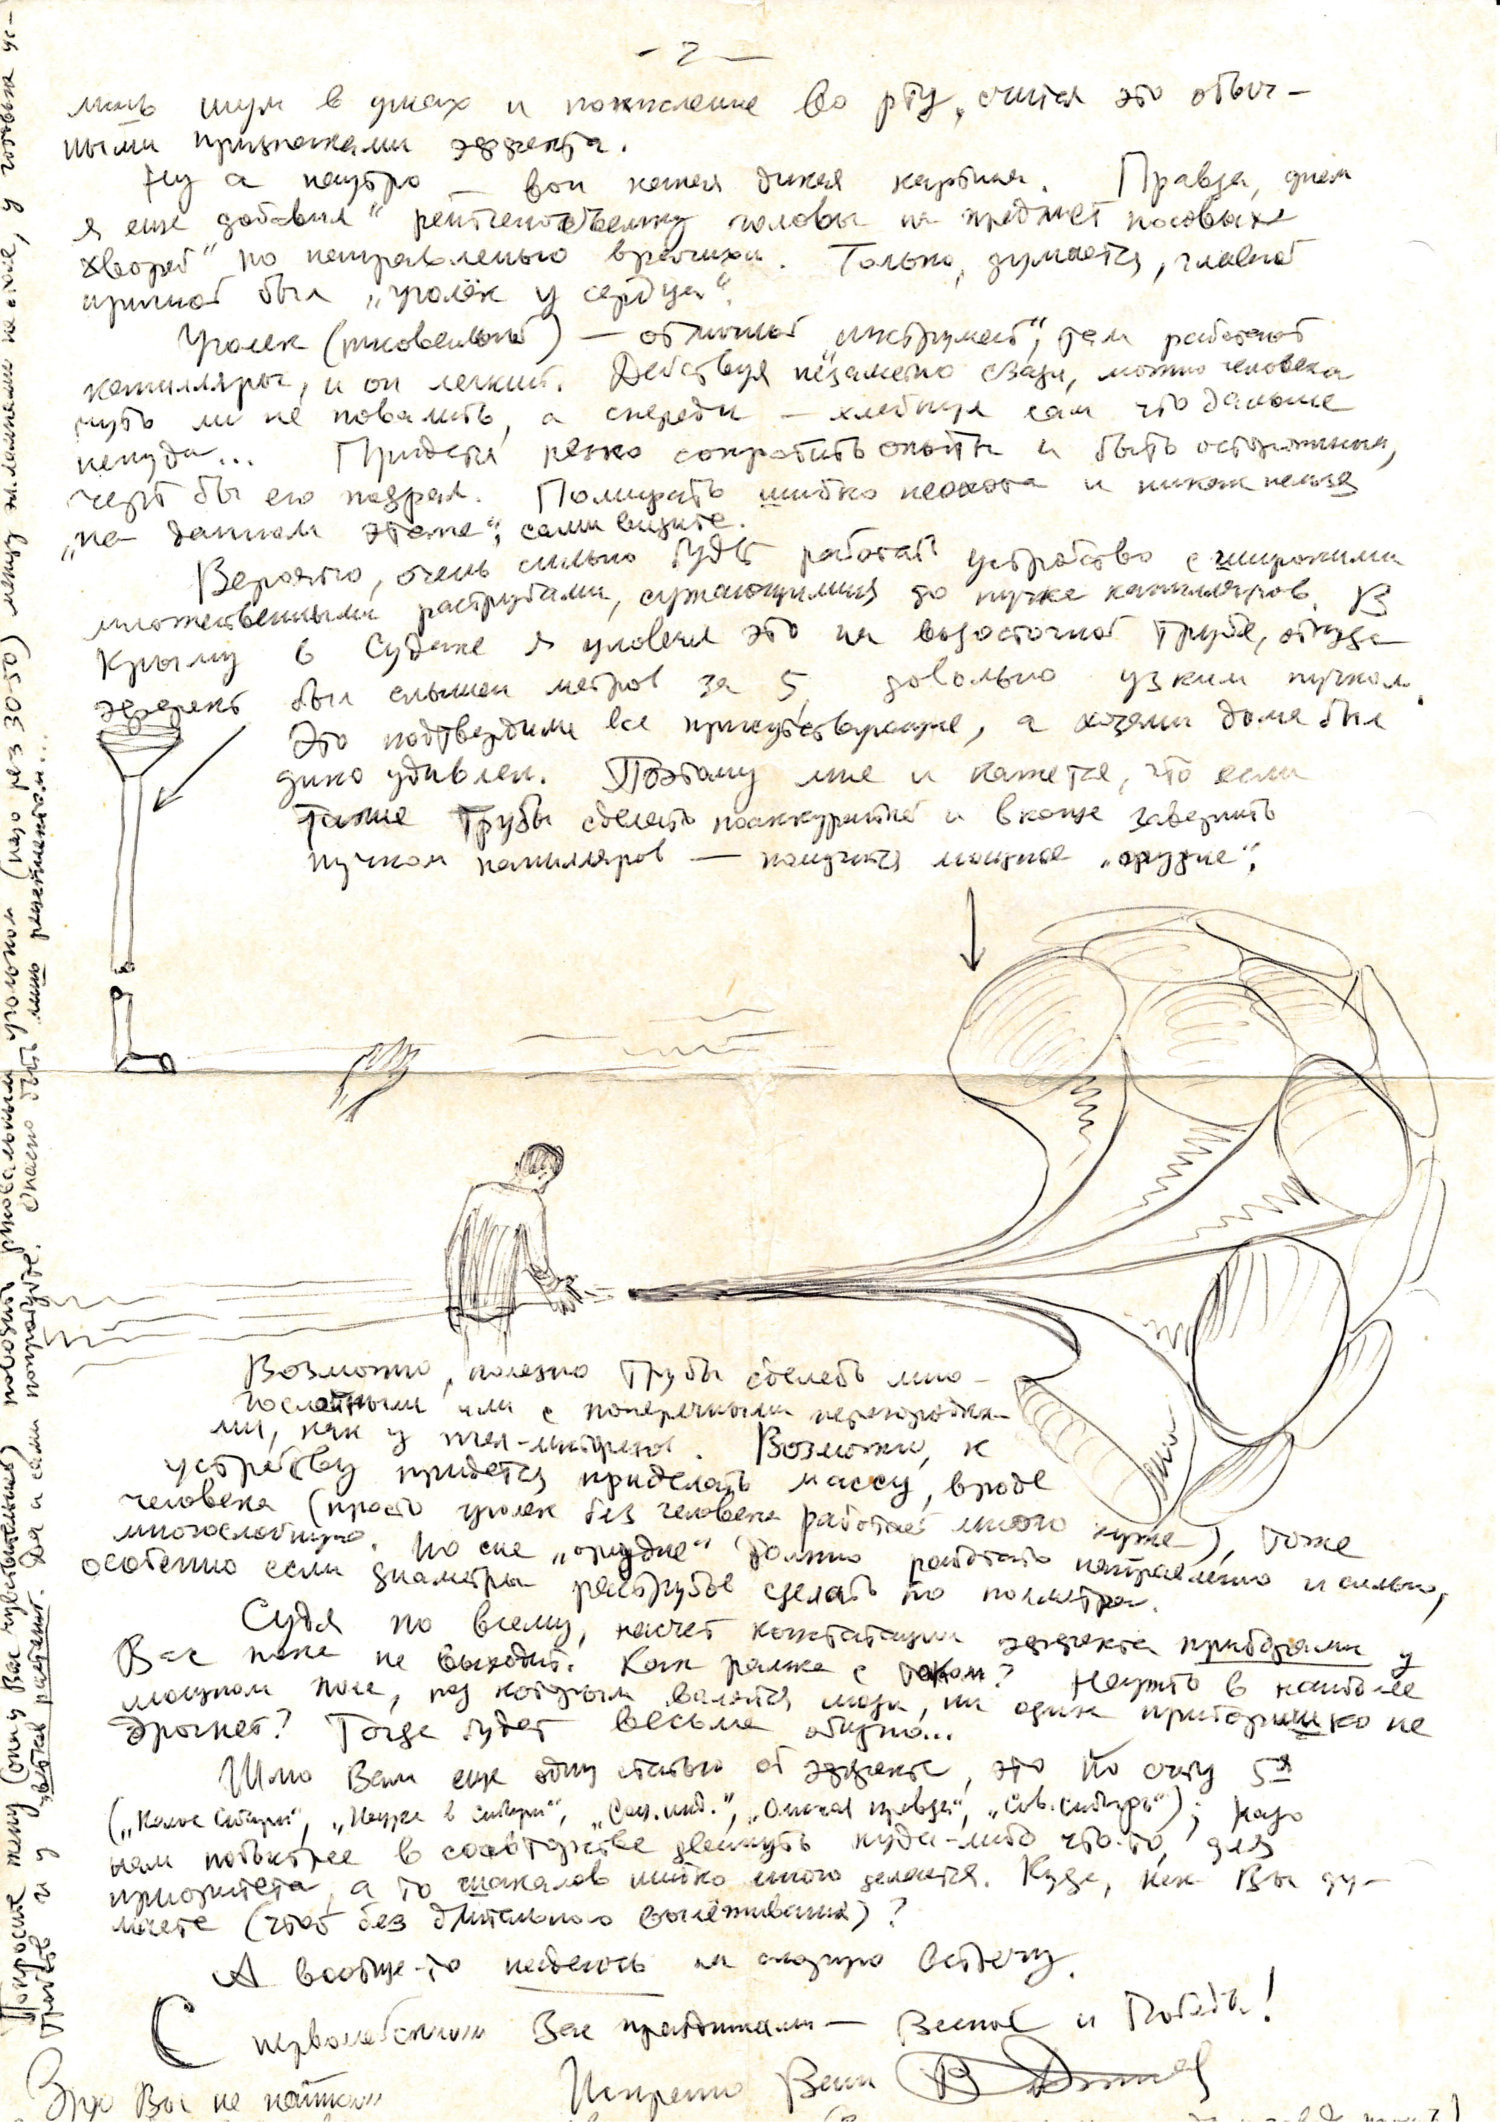 - 2 -
лишь шум в ушах и покисление во рту, считая это обыч-
ными признаками эффекта.
Ну а наутро — вон какая дикая картина. Правда, днем
я еще добавил "рентгеносъемку головы на предмет носовых
хворей" по направлению врачихи. Только, думается, главной
причиной был "уголёк у сердца".
Уголек (рисовальный) — отличный "инструмент", там работают
капилляры, и он легкий. Действуя незаметно сзади, можно человека
чуть ли не повалить, а спереди — хлебнул сам что дальше
некуда... Придется резко сократить опыты и быть осторожным,
черт бы его подрал. Помирать шибко неохота и никак нельзя
"на данном этапе", сами видите.
Вероятно, очень сильно будет работать устройство с широкими
множественными раструбами, сужающимися до пучка капилляров. В
Крыму в Судаке я уловил это на водосточной трубе, откуда
эффект был слышен метров за 5, довольно узким пучком.
Это подтвердили все присутствующие, а хозяин дома был
дико удивлен. Поэтому мне и кажется, что если
такие трубы сделать поаккуратней и в конце завершить
пучком капилляров — получится мощное "орудие".
Возможно, полезно трубы сделать мно-
гослойными или с поперечными перегородка-
ми, как у . Возможно, к
устройству придется приделать массу, вроде
человека (просто уголек без человека работает много хуже), тоже
многослойную. Но сие "орудие" должно работать направленно и сильно,
особенно если диаметры раструбов сделать по полметра.
Судя по всему, насчет констатации эффекта приборами у
Вас пока не выходит. Как рамка с током? Неужто в наиболее
мощном поле, под которым валятся люди, ни один приборишко не
дрогнет? Тогда будет весьма обидно...
Шлю Вам еще одну статью об эффекте, это по счету 5я
("Наука в Сибири", "Соц. инд.", "Омская правда", "Сов. Сибирь"); надо
нам побыстрее в соавторстве двинуть куда-либо что-то, для
приоритета, а то шакалов шибко много делается. Куда, как Вы ду-
маете (чтоб без длительного вылёживания)?
А вообще-то надеюсь на скорую встречу.
С первомайскими Вас праздниками — Весной и Победы!
Искренно Ваш
Зря Вы не
Попросите жену (она у Вас чувствительная) поводить рисовальным угольком (надо раз 30-50) между на столе, у головы
и у цветка растений. Да и сами попробуйте. Опасно быть лишь реципиентом...